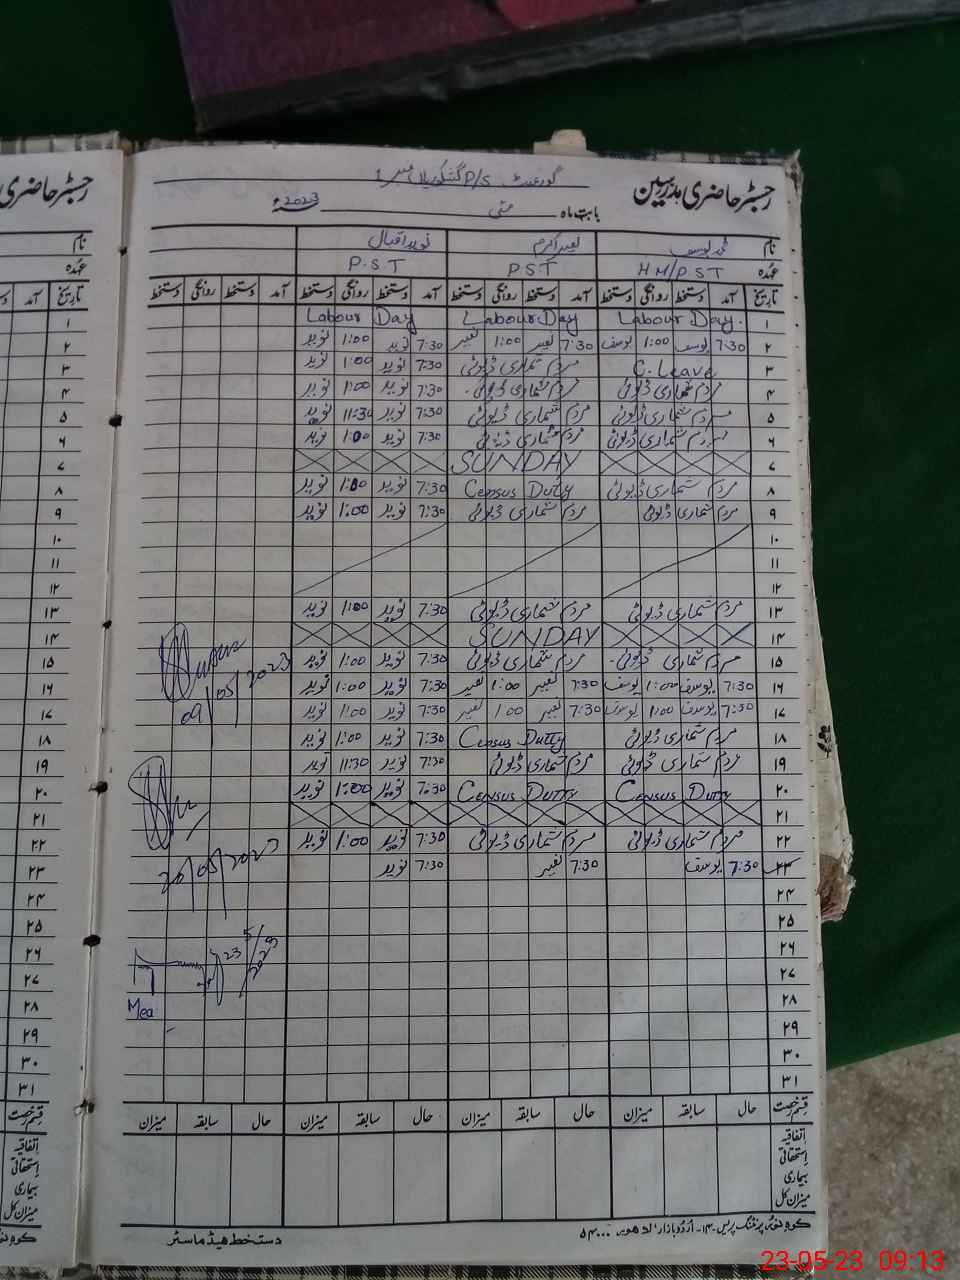 رجسٹر حاضری مدرسین
گورنمنٹ P/S
بابت ماہ مئی 2023ء
نام محمد یوسف نصیر اکرم نوید اقبال
عہدہ HM/PST PST P.S.T
تاریخ آمد دستخط روانگی دستخط آمد دستخط روانگی دستخط آمد دستخط روانگی دستخط آمد دستخط روانگی دستخط
۱ Labour Day. Labour Day Labour Day
۲ 7:30 یوسف 1:00 یوسف 7:30 نصیر 1:00 نصیر 7:30 نوید 1:00 نوید
۳ C. Leave مردم شماری ڈیوٹی 7:30 نوید 1:00 نوید
۴ مردم شماری ڈیوٹی مردم شماری ڈیوٹی 7:30 نوید 1:00 نوید
۵ مردم شماری ڈیوٹی مردم شماری ڈیوٹی 7:30 نوید 11:30 نوید
۶ مردم شماری ڈیوٹی مردم شماری ڈیوٹی 7:30 نوید 1:00 نوید
۷ SUNDAY
۸ مردم شماری ڈیوٹی Census Duty 7:30 نوید 1:00 نوید
۹ مردم شماری ڈیوٹی مردم شماری ڈیوٹی 7:30 نوید 1:00 نوید
۱۰
۱۱
۱۲
۱۳ مردم شماری ڈیوٹی مردم شماری ڈیوٹی 7:30 نوید 1:00 نوید
۱۴ SUNDAY
۱۵ مردم شماری ڈیوٹی مردم شماری ڈیوٹی 7:30 نوید 1:00 نوید
۱۶ 7:30 یوسف 1:00 یوسف 7:30 نصیر 1:00 نصیر 7:30 نوید 1:00 نوید
۱۷ 7:30 یوسف 1:00 یوسف 7:30 نصیر 1:00 نصیر 7:30 نوید 1:00 نوید
09/05/2023
۱۸ مردم شماری ڈیوٹی Census Dutty 7:30 نوید 1:00 نوید
۱۹ مردم شماری ڈیوٹی مردم شماری ڈیوٹی 7:30 نوید 11:30 نوید
۲۰ Census Dutty Census Dutty 7:30 نوید 1:00 نوید
۲۱
۲۲ مردم شماری ڈیوٹی مردم شماری ڈیوٹی 7:30 نوید 1:00 نوید
۲۳ 7:30 یوسف 7:30 نصیر 7:30 نوید
20/05/2023
۲۴
۲۵
۲۶
23/5/2023
۲۷
۲۸
Mea
۲۹
۳۰
۳۱
قسم رخصت حال سابقہ میزان حال سابقہ میزان حال سابقہ میزان حال سابقہ میزان
اتفاقیہ
استحقاقی
بیماری
میزان کل
دستخط ہیڈ ماسٹر
23-05-23 09:13